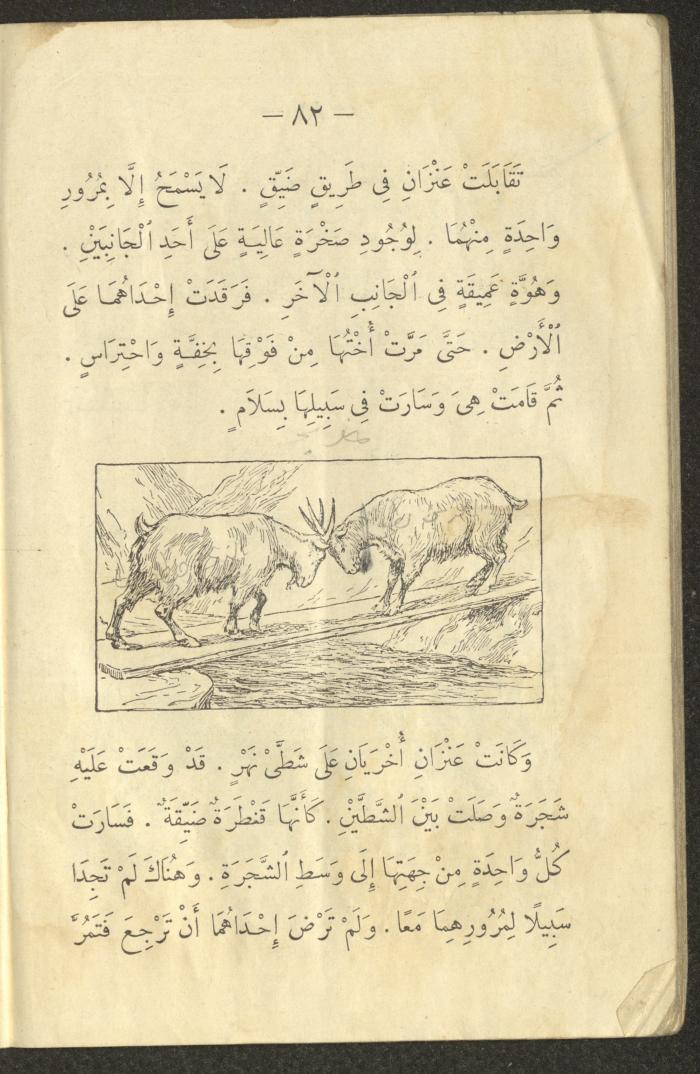 — ٨٢ —
تَقَابَلَتْ عَنْزَانِ فِى طَرِيقٍ ضَيِّقٍ . لَا يَسْمَحُ إِلَّا بِمُرُورِ
وَاحِدَةٍ مِنْهُمَا . لِوُجُودِ صَخْرَةٍ عَالِيَةٍ عَلَى أَحَدِ ٱلْجَانِبَيْنِ .
وَهُوَّةٍ عَمِيقَةٍ فِى ٱلْجَانِبِ ٱلْآخَرِ . فَرَقَدَتْ إِحْدَاهُمَا عَلَى
ٱلْأَرْضِ . حَتَّى مَرَّتْ أُخْتُهَا مِنْ فَوْقِهَا بِخِفَّةٍ وَاحْتِرَاسٍ .
ثُمَّ قَامَتْ هِىَ وَسَارَتْ فِى سَبِيلِهَا بِسَلَامٍ .
وَكَانَتْ عَنْزَانِ أُخْرَيَانِ عَلَى شَطَّىْ نَهْرٍ . قَدْ وَقَعَتْ عَلَيْهِ
شَجَرَةٌ وَصَلَتْ بَيْنَ ٱلشَّطَّيْنِ . كَأَنَّهَا قَنْطَرَةٌ ضَيِّقَةٌ . فَسَارَتْ
كُلُّ وَاحِدَةٍ مِنْ جِهَتِهَا إِلَى وَسَطِ ٱلشَّجَرَةِ . وَهُنَاكَ لَمْ تَجِدَا
سَبِيلًا لِمُرُورِهِمَا مَعًا . وَلَمْ تَرْضَ إِحْدَاهُمَا أَنْ تَرْجِعَ فَتَمُرَّ